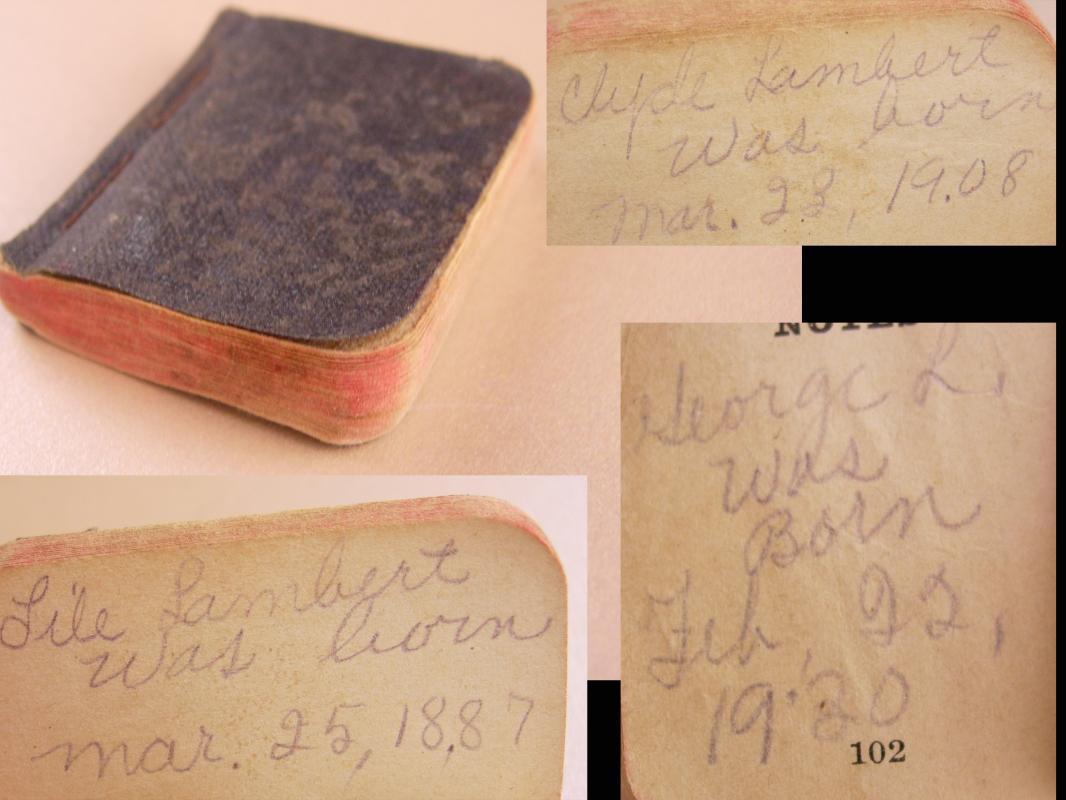 Clyde Lambert
was born
Mar. 23, 19.08
NOTES
George L.
Was
Born
Feb, 22,
19'20
102
Lile Lambert
was born
mar. 25, 18,87